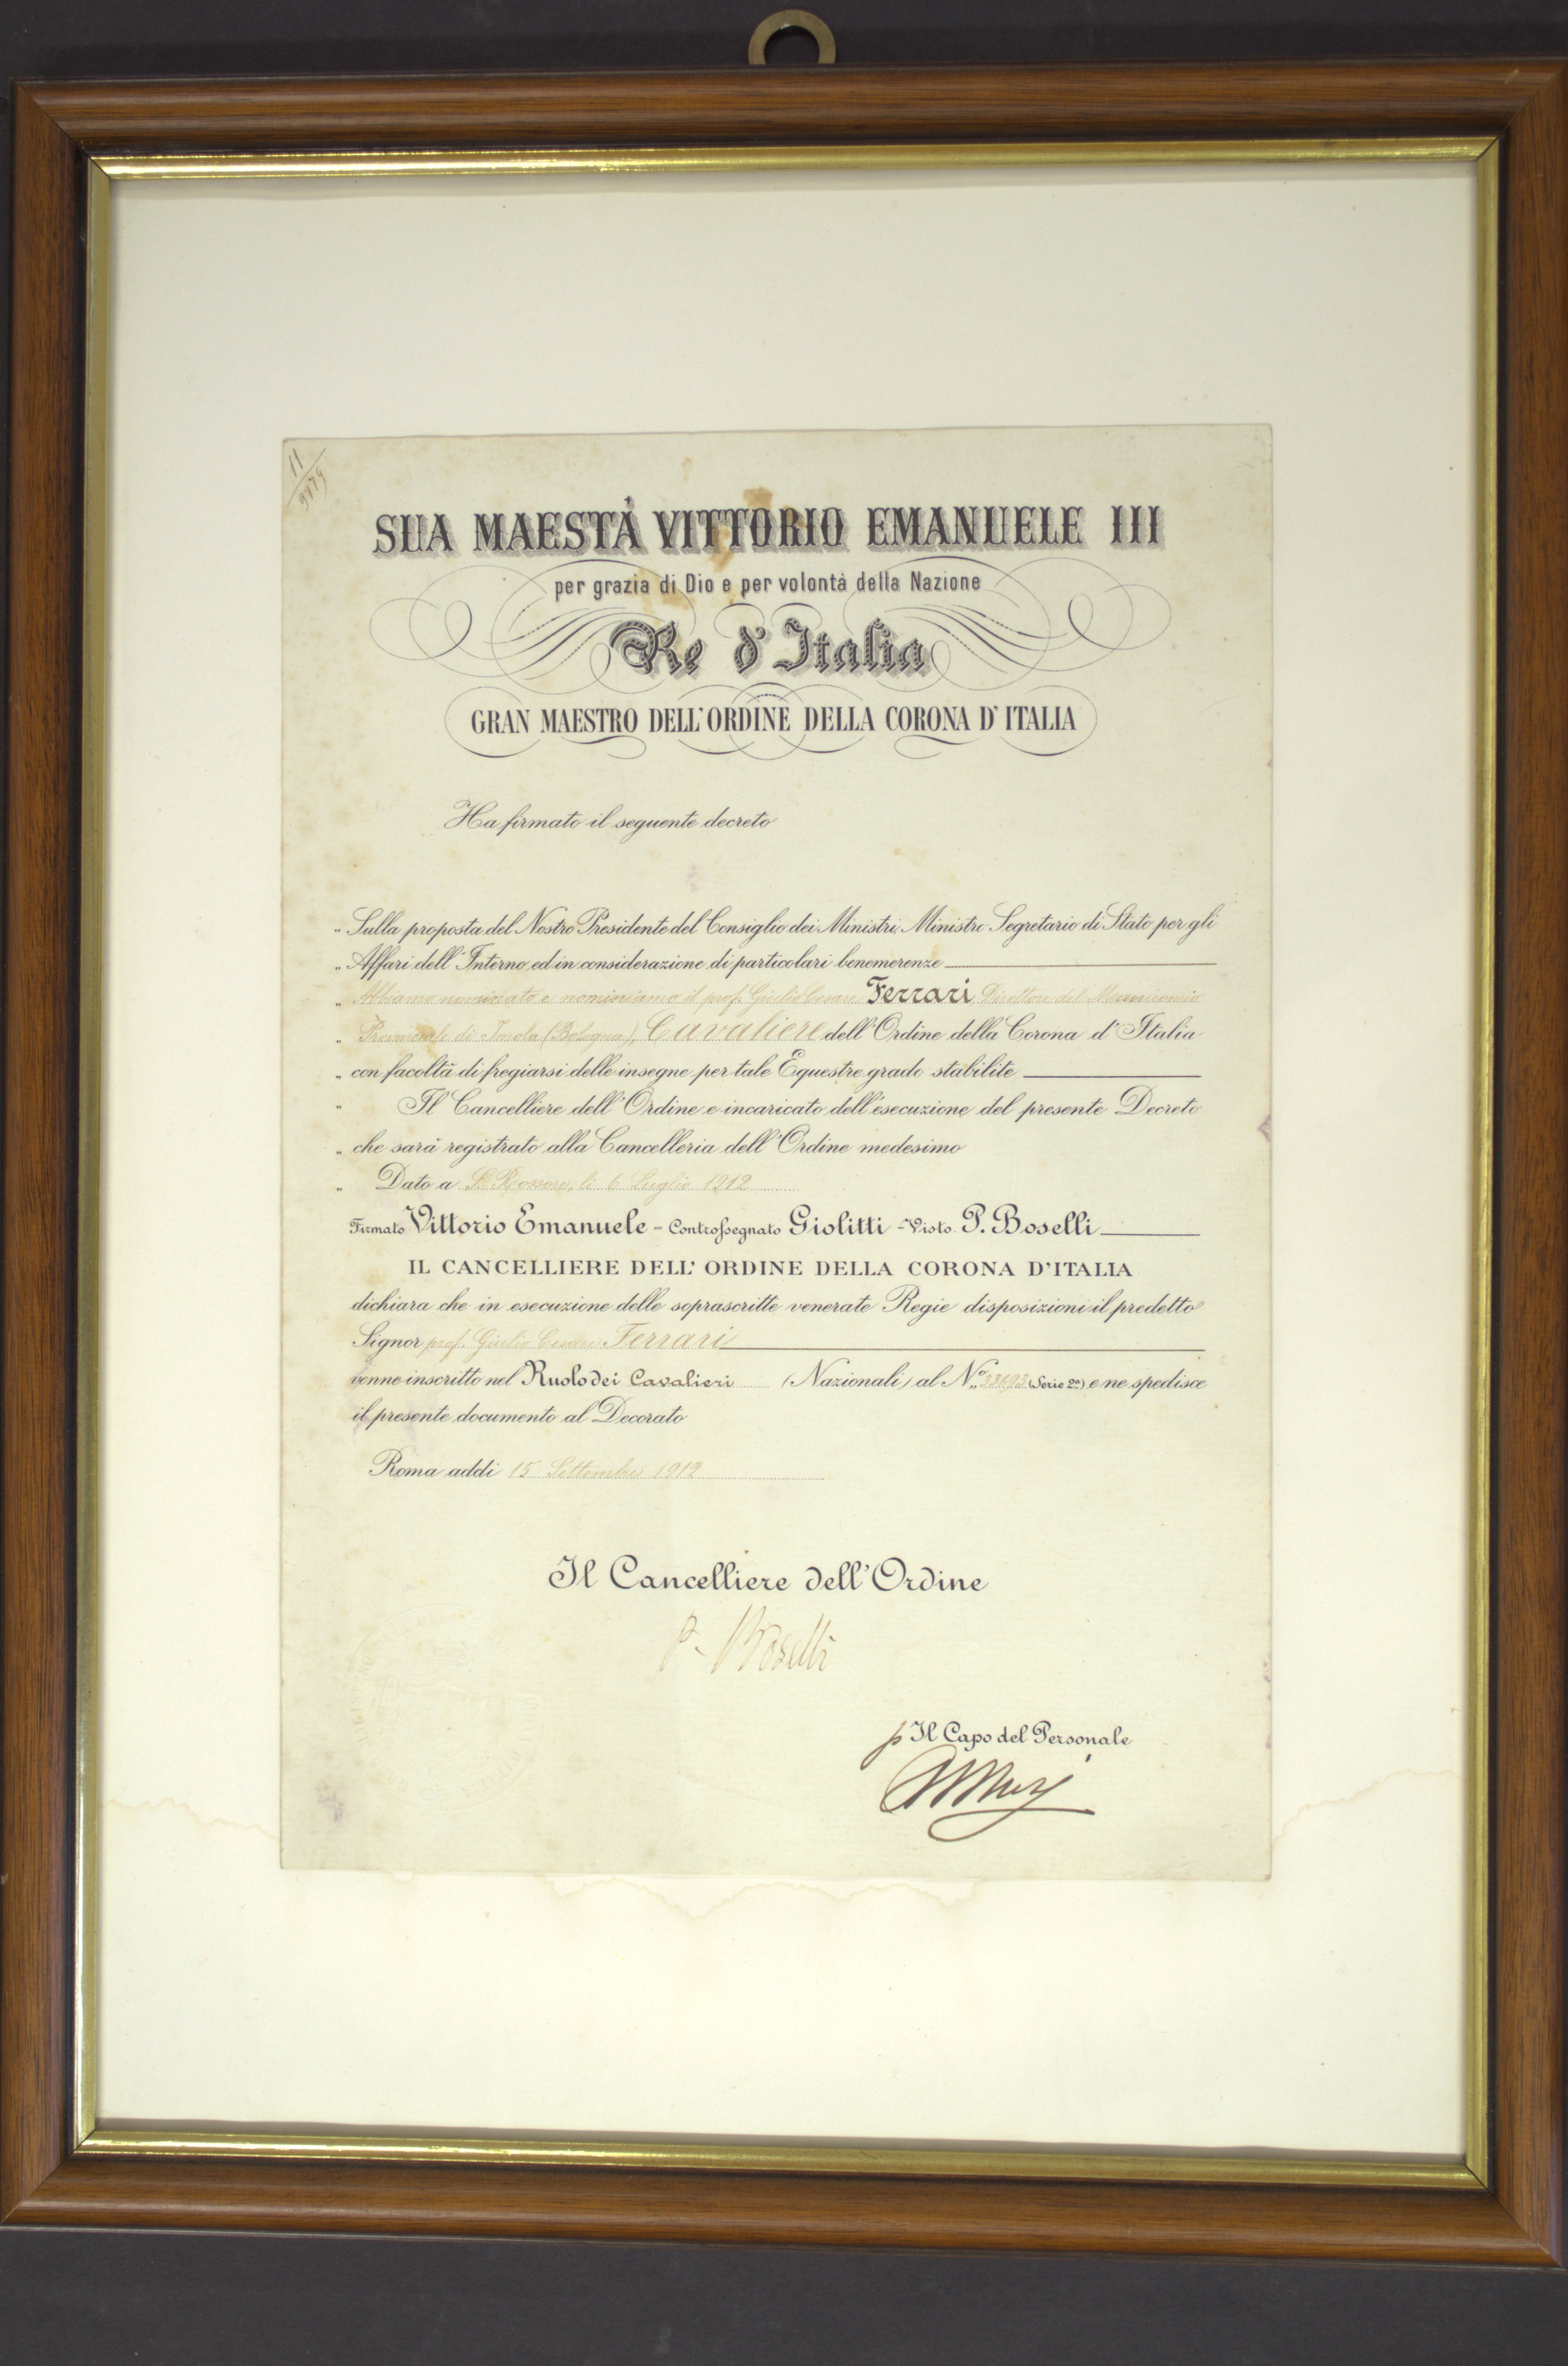 11/9879
SUA MAESTÀ VITTORIO EMANUELE III
per grazia di Dio e per volontà della Nazione
Re d'Italia
GRAN MAESTRO DELL'ORDINE DELLA CORONA D'ITALIA
Ha firmato il seguente decreto
„ Sulla proposta del Nostro Presidente del Consiglio dei Ministri, Ministro Segretario di Stato per gli
„ Affari dell'Interno, ed in considerazione di particolari benemerenze
„ Abbiamo nominato e nominiamo il prof. Giulio Cesare Ferrari, Direttore del Manicomio
„ Provinciale di Imola (Bologna), Cavaliere dell'Ordine della Corona d'Italia
„ con facoltà di fregiarsi delle insegne per tale Equestre grado stabilite
„ Il Cancelliere dell'Ordine è incaricato dell'esecuzione del presente Decreto
„ che sarà registrato alla Cancelleria dell'Ordine medesimo
„ Dato a S. Rossore, li 6 Luglio 1912
Firmato Vittorio Emanuele - Controssegnato Giolitti - Visto P. Boselli
IL CANCELLIERE DELL' ORDINE DELLA CORONA D'ITALIA
dichiara che in esecuzione delle soprascritte venerate Regie disposizioni il predetto
Signor prof. Giulio Cesare Ferrari
venne inscritto nel Ruolo dei Cavalieri (Nazionali) al N.° (Serie 2ª) e ne spedisce
il presente documento al Decorato
Roma addì 15 Settembre 1912
Il Cancelliere dell'Ordine
P. Boselli
p Il Capo del Personale